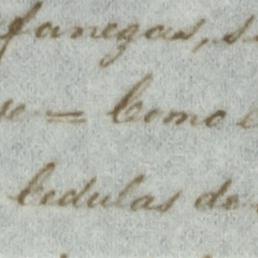 fanegas, s
se = Como
Cedulas de